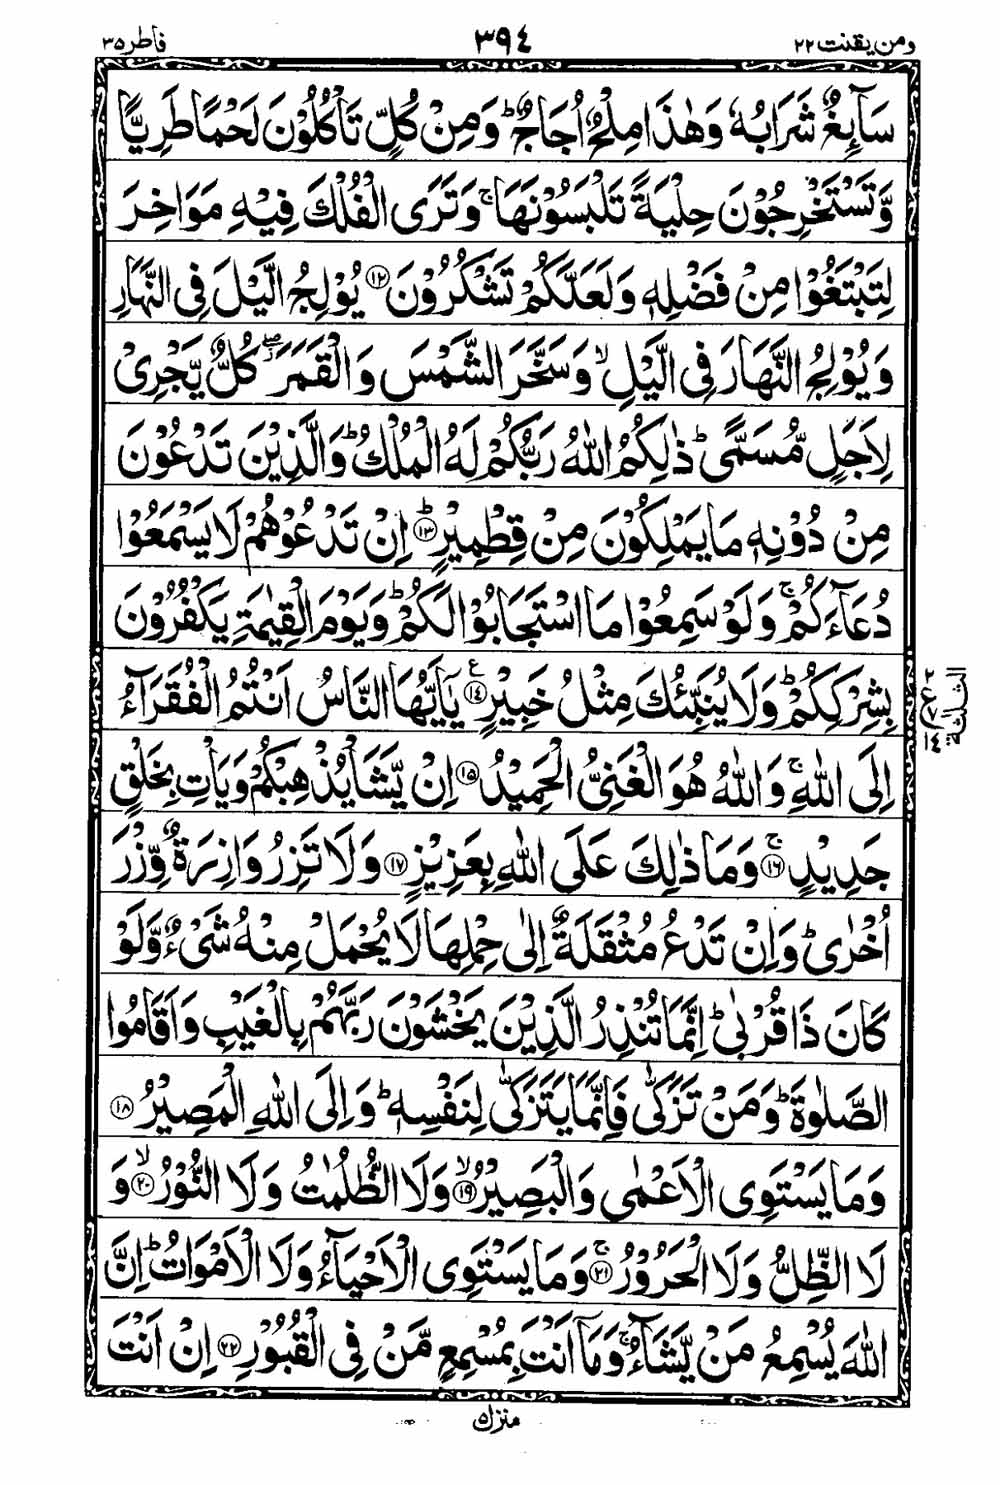 ومن يقنت ٢٢ ٣٩٤ فاطر ٣٥
سَآئِغٌ شَرَابُهٗ وَهٰذَا مِلْحٌ اُجَاجٌ ؕ وَمِنْ كُلٍّ تَاْكُلُوْنَ لَحْمًا طَرِيًّا
وَّتَسْتَخْرِجُوْنَ حِلْيَةً تَلْبَسُوْنَهَا ۚ وَتَرَى الْفُلْكَ فِيْهِ مَوَاخِرَ
لِتَبْتَغُوْا مِنْ فَضْلِهٖ وَلَعَلَّكُمْ تَشْكُرُوْنَ ۝١٢ يُوْلِجُ الَّيْلَ فِى النَّهَارِ
وَيُوْلِجُ النَّهَارَ فِى الَّيْلِ ۙ وَسَخَّرَ الشَّمْسَ وَالْقَمَرَ ۖ كُلٌّ يَّجْرِىْ
لِاَجَلٍ مُّسَمًّى ؕ ذٰلِكُمُ اللّٰهُ رَبُّكُمْ لَهُ الْمُلْكُ ؕ وَالَّذِيْنَ تَدْعُوْنَ
مِنْ دُوْنِهٖ مَا يَمْلِكُوْنَ مِنْ قِطْمِيْرٍ ؕ ۝١٣ اِنْ تَدْعُوْهُمْ لَا يَسْمَعُوْا
دُعَآءَكُمْ ۚ وَلَوْ سَمِعُوْا مَا اسْتَجَابُوْا لَكُمْ ؕ وَيَوْمَ الْقِيٰمَةِ يَكْفُرُوْنَ
بِشِرْكِكُمْ ؕ وَلَا يُنَبِّئُكَ مِثْلُ خَبِيْرٍ ۝١٤ ع يٰۤاَيُّهَا النَّاسُ اَنْتُمُ الْفُقَرَآءُ
اِلَى اللّٰهِ ۚ وَاللّٰهُ هُوَ الْغَنِىُّ الْحَمِيْدُ ۝١٥ اِنْ يَّشَاْ يُذْهِبْكُمْ وَيَاْتِ بِخَلْقٍ
جَدِيْدٍ ۚ ۝١٦ وَمَا ذٰلِكَ عَلَى اللّٰهِ بِعَزِيْزٍ ۝١٧ وَلَا تَزِرُ وَازِرَةٌ وِّزْرَ
اُخْرٰى ؕ وَاِنْ تَدْعُ مُثْقَلَةٌ اِلٰى حِمْلِهَا لَا يُحْمَلْ مِنْهُ شَىْءٌ وَّلَوْ
كَانَ ذَا قُرْبٰى ؕ اِنَّمَا تُنْذِرُ الَّذِيْنَ يَخْشَوْنَ رَبَّهُمْ بِالْغَيْبِ وَاَقَامُوا
الصَّلٰوةَ ؕ وَمَنْ تَزَكّٰى فَاِنَّمَا يَتَزَكّٰى لِنَفْسِهٖ ؕ وَاِلَى اللّٰهِ الْمَصِيْرُ ۝١٨
وَمَا يَسْتَوِى الْاَعْمٰى وَالْبَصِيْرُ ۙ ۝١٩ وَلَا الظُّلُمٰتُ وَلَا النُّوْرُ ۙ ۝٢٠ وَ
لَا الظِّلُّ وَلَا الْحَرُوْرُ ۚ ۝٢١ وَمَا يَسْتَوِى الْاَحْيَآءُ وَلَا الْاَمْوَاتُ ؕ اِنَّ
اللّٰهَ يُسْمِعُ مَنْ يَّشَآءُ ۚ وَمَاۤ اَنْتَ بِمُسْمِعٍ مَّنْ فِى الْقُبُوْرِ ۝٢٢ اِنْ اَنْتَ
الثلاثة